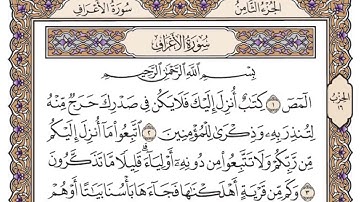 سُورَةُ الأَعْرَافِ الجُزْءُ الثَّامِنُ
سُورَةُ الأَعْرَافِ
بِسْمِ اللَّهِ الرَّحْمَٰنِ الرَّحِيمِ
الٓمٓصٓ ١ كِتَٰبٌ أُنزِلَ إِلَيْكَ فَلَا يَكُن فِى صَدْرِكَ حَرَجٌ مِّنْهُ
لِتُنذِرَ بِهِۦ وَذِكْرَىٰ لِلْمُؤْمِنِينَ ٢ ٱتَّبِعُوا۟ مَآ أُنزِلَ إِلَيْكُم
مِّن رَّبِّكُمْ وَلَا تَتَّبِعُوا۟ مِن دُونِهِۦٓ أَوْلِيَآءَ ۗ قَلِيلًا مَّا تَذَكَّرُونَ
٣ وَكَم مِّن قَرْيَةٍ أَهْلَكْنَٰهَا فَجَآءَهَا بَأْسُنَا بَيَٰتًا أَوْ هُمْ
الحِزْبُ
١٦